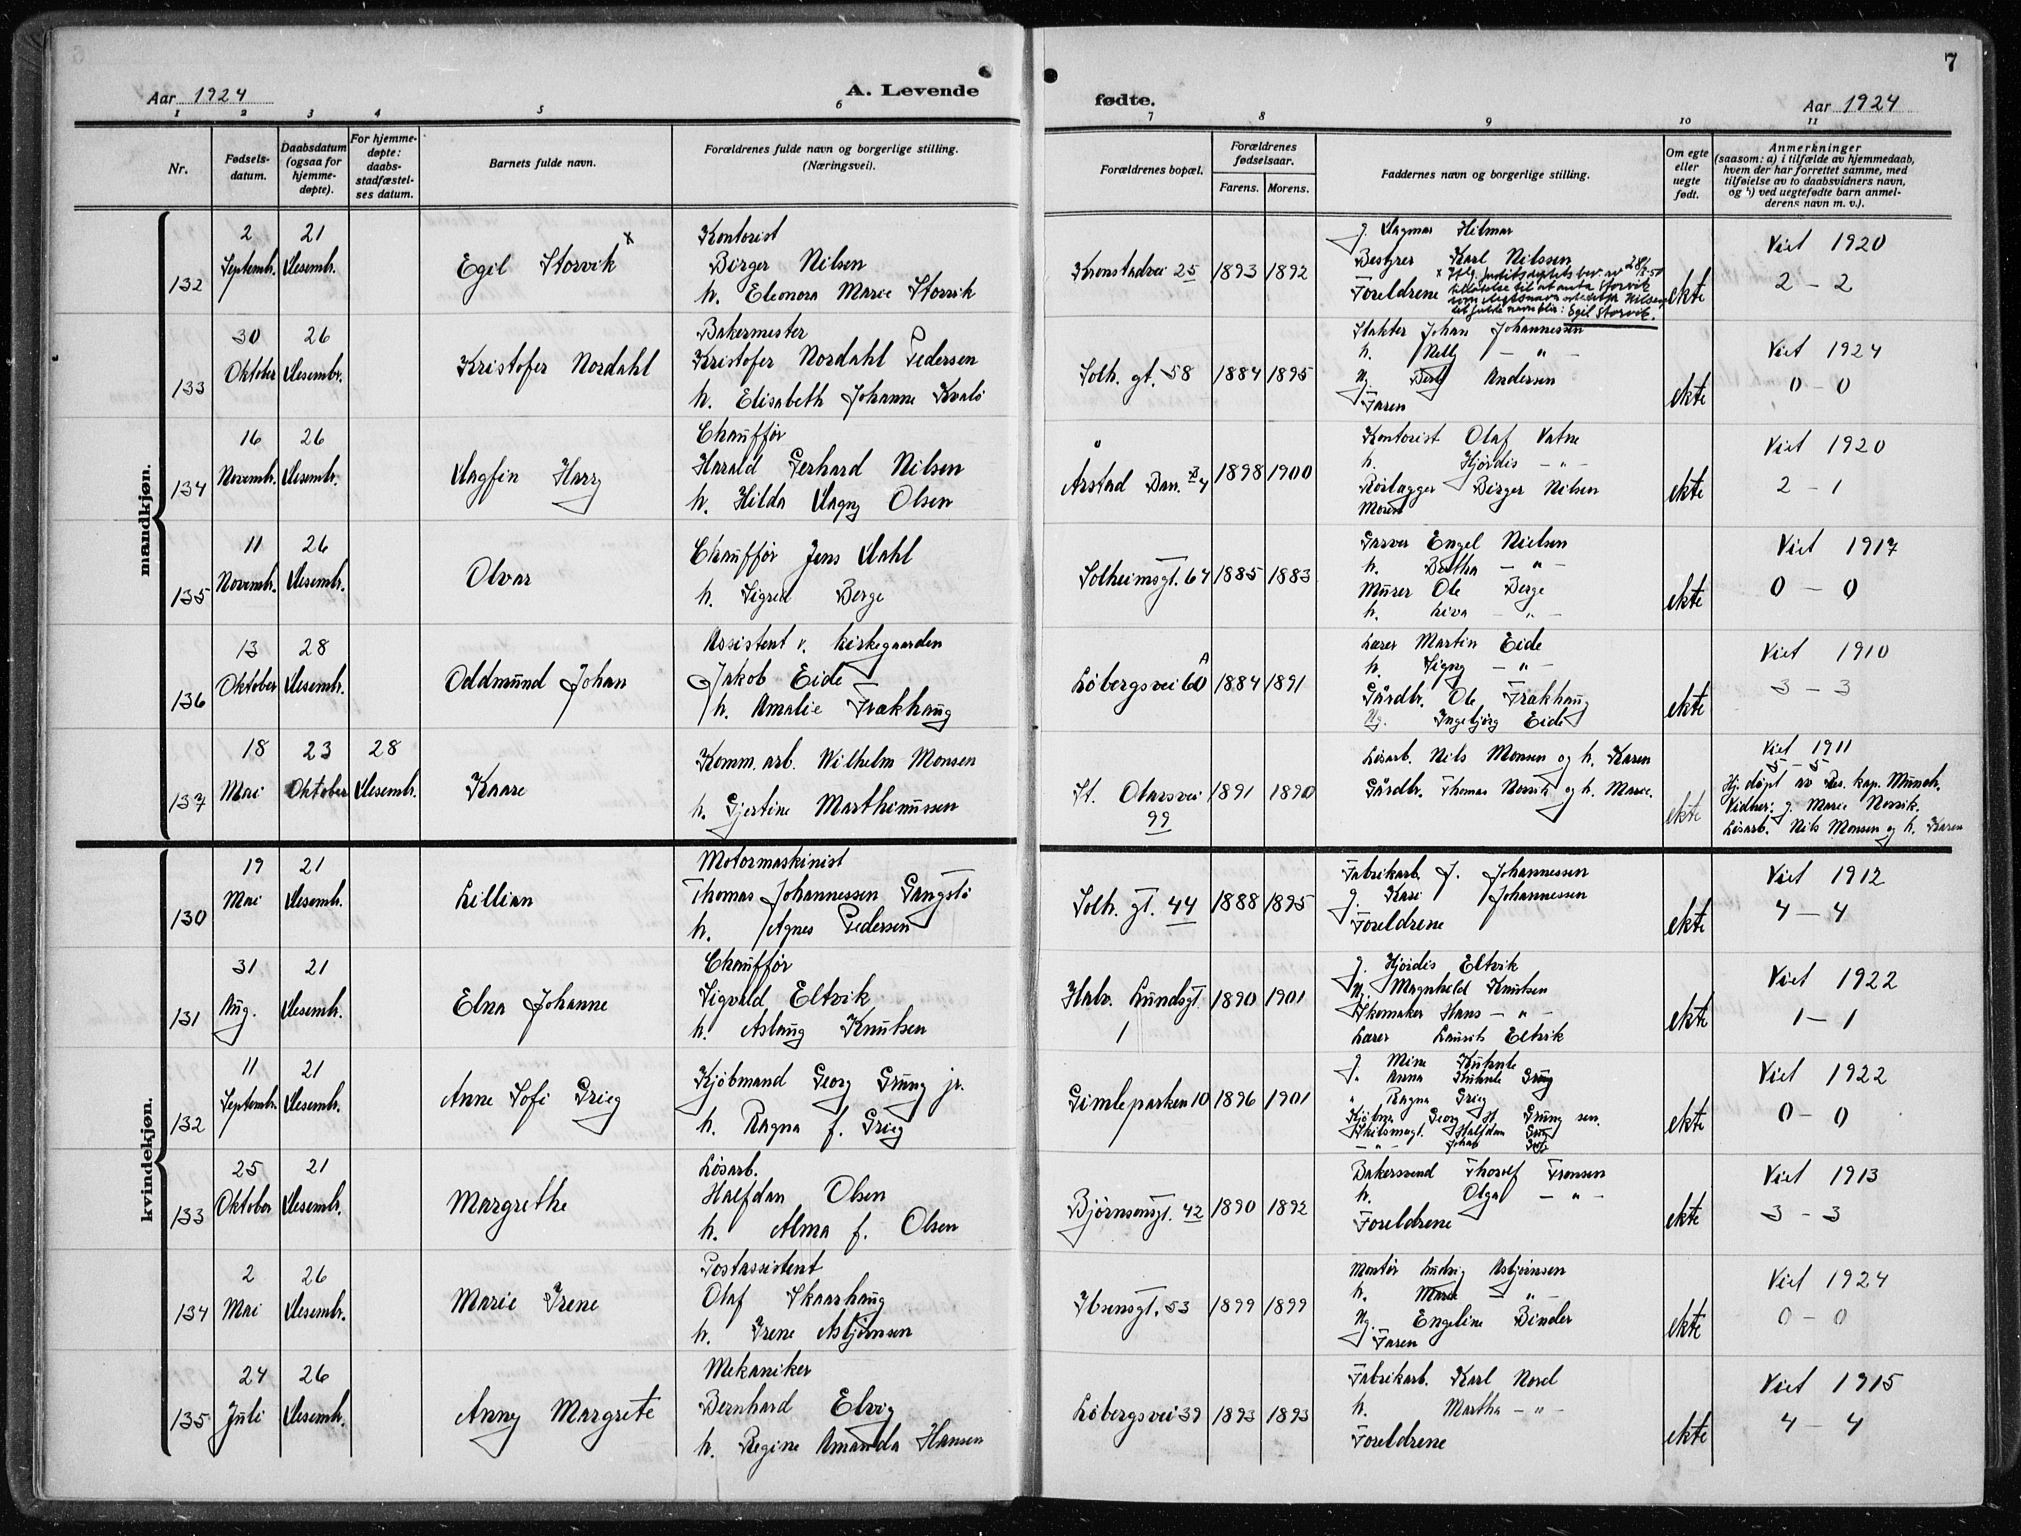 7
Aar 1924
A. Levende
fødte.
Aar 1924
1 2 3 4 5 6 7 8 9 10 11
Nr.
Fødsels-
datum.
Daabsdatum
(ogsaa for
hjemme-
døpte).
For hjemme-
døpte:
daabs-
stadfæstel-
ses datum.
Barnets fulde navn.
Forældrenes fulde navn og borgerlige stilling.
(Næringsvei).
Forældrenes bopæl.
Forældrenes
fødselsaar.
Farens. Morens.
Faddernes navn og borgerlige stilling.
Om egte
eller
uegte
født.
Anmerkninger
(saasom: a) i tilfælde av hjemmedaab,
hvem der har forrettet samme, med
tilføielse av to daabsvidners navn,
og b) ved uegtefødte barn anmel-
derens navn m. v.).
mandkjøn.
132
2
Septembr.
21
Desembr.
Egil Storvik x
Kontorist
Birger Nilsen
h. Eleonora Marie Storvik
Kronstadvei 25
1893 1892
g. Dagmar Hilmar
Bestyrer Karl Nilssen
Foreldrene
tillatelse til at anta Storvik
Egil Storvik.
ekte
Viet 1920
2 - 2
133
30
Oktober
26
Desembr.
Kristofer Nordahl
Bakermester
Kristofer Nordahl Pedersen
h. Elisabeth Johanne Kvalö
Solh. gt. 58
1884 1895
Slakter Johan Johannessen
h. Nelly - " -
Ug. Berly Andersen
Faren
ekte
Viet 1924
0 - 0
134
16
Novembr.
26
Desembr.
Dagfin Harry
Chauffør
Harald Gerhard Nilsen
h. Hilda Dagny Olsen
Årstad
1898 1900
Kontorist Olaf Vatne
h. Hjördis - " -
Rörlægger Birger Nilsen
Moren
ekte
Viet 1920
2 - 1
135
11
Novembr.
26
Desembr.
Olvar
Chauffør Jens Dahl
h. Sigrid Berge
Solheimsgt. 64
1885 1883
Garver Engel Nielsen
h. Bertha - " -
Murer Ole Berge
h. Liva - " -
ekte
Viet 1917
0 - 0
136
13
Oktober
28
Desembr.
Oddmund Johan
Assistent v. kirkegaarden
Jakob Eide
h. Amalie Trækhaug
Löbergsvei 60 A
1884 1891
Lærer Martin Eide
h. Signy - " -
Gårdbr. Ole Trækhaug
Ug. Ingebjörg Eide
ekte
Viet 1910
3 - 3
137
18
Mai
23
Oktober
28
Desembr.
Kaare
Komm. arb. Wilhelm Monsen
h. Gjertine Marthinussen
St. Olavsvei
99
1891 1890
Lösarb. Nils Monsen og h. Karen
Gårdbr. Thomas Norvik og h. Marie.
ekte
Viet 1911
5 - 5
Hj. döpt av Res. kap. Munch.
Vidner: g. Marie Norvik.
Lösarb. Nils Monsen og h. Karen
kvindekjøn.
130
19
Mai
21
Desembr.
Lillian
Motormaskinist
Thomas Johannessen Gangstö
h. Agnes Pedersen
Solh. gt. 44
1888 1895
Fabrikarb. J. Johannessen
g. Kari Johannessen
Foreldrene
ekte
Viet 1912
4 - 4
131
31
Aug.
21
Desembr.
Elna Johanne
Chauffør
Sigvald Eltvik
h. Aslaug Knutsen
Halv. Lundsgt.
1
1890 1901
g. Hjördis Eltvik
Ug. Magnhild Knutsen
Skomaker Hans - " -
Lærer Laurits Eltvik
ekte
Viet 1922
1 - 1
132
11
Septembr.
21
Desembr.
Anne Sofi Grieg
Kjöbmand Georg Grung jr.
h. Ragna f. Grieg
Gimleparken 10
1896 1901
g. Mina Kuhnle
" Anna Kuhnle Grung
" Ragna Grieg
Kjöbm. Georg H. Grung sen.
Skibsmegl. Halfdan Grieg
- " - Johan Grieg
ekte
Viet 1922
0 - 0
133
25
Oktober
21
Desembr.
Margrethe
Lösarb.
Halfdan Olsen
h. Alma f. Olsen
Bjørnsonsgt. 42
1890 1892
Bakersvend Thorolf Fronsen
h. Olga - " -
Foreldrene
ekte
Viet 1913
3 - 3
134
2
Mai
26
Desembr.
Marie Irene
Postassistent
Olaf Skaarhaug
h. Irene Asbjørnsen
Ibsensgt. 53
1899 1899
Montör Ludvig Asbjørnsen
h. Marie - " -
Ug. Engeline Binder
Faren
ekte
Viet 1924
0 - 0
135
24
Juli
26
Desembr.
Anny Margrete
Mekaniker
Bernhard Elvig
h. Regine Amanda Hansen
Löbergsvei 39
1893 1893
Fabrikarb. Karl Nord
h. Martha - " -
Foreldrene
ekte
Viet 1915
4 - 4